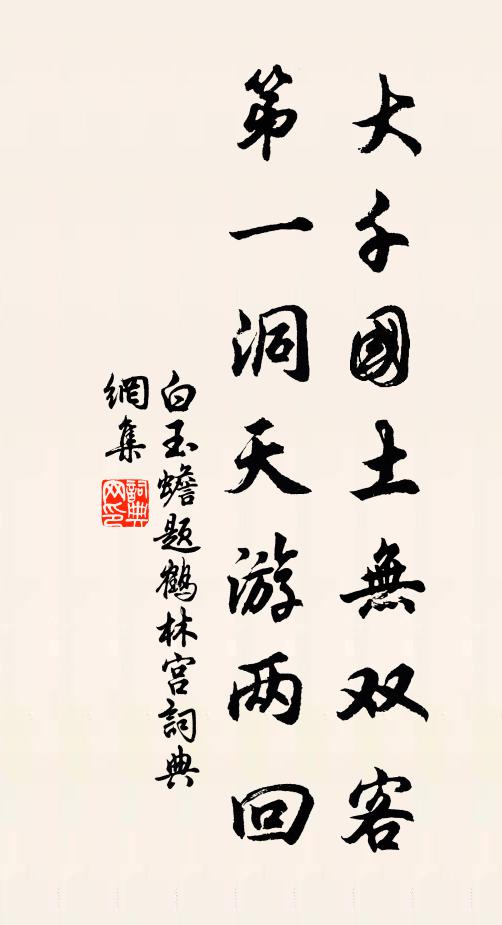 大千國土無双客
第一洞天游两回
白玉蟾题鹤林宫詞典
網集
詞典
网印